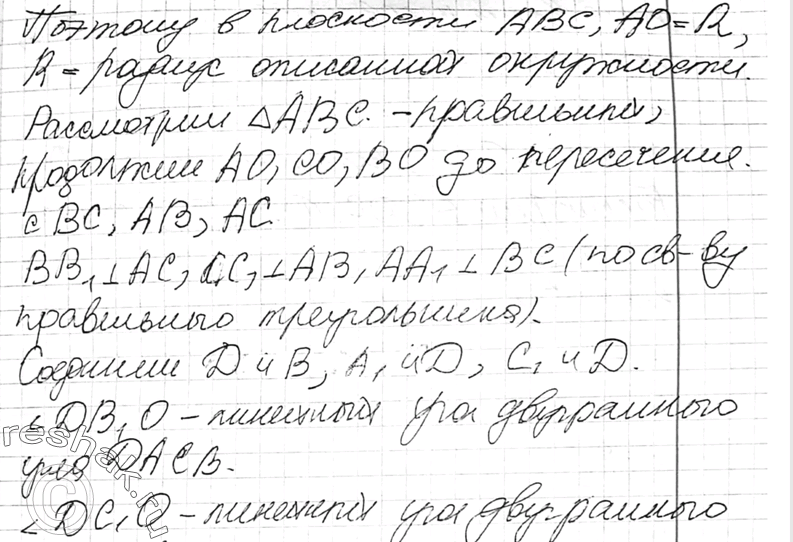 Поэтому в плоскости ABC, AO=R,
R = радиус описанной окружности.
Рассмотрим △ABC. - правильный,
продолжим AO, CO, BO до пересечения.
с BC, AB, AC
BB₁⊥AC, CC₁⊥AB, AA₁⊥BC (по св-ву
правильного треугольника).
Соединим D и B₁, A₁ и D, C₁ и D.
∠DB₁O - линейный угол двугранного
угла DACB.
∠DC₁O - линейный угол двугранного
reshak.ru
©